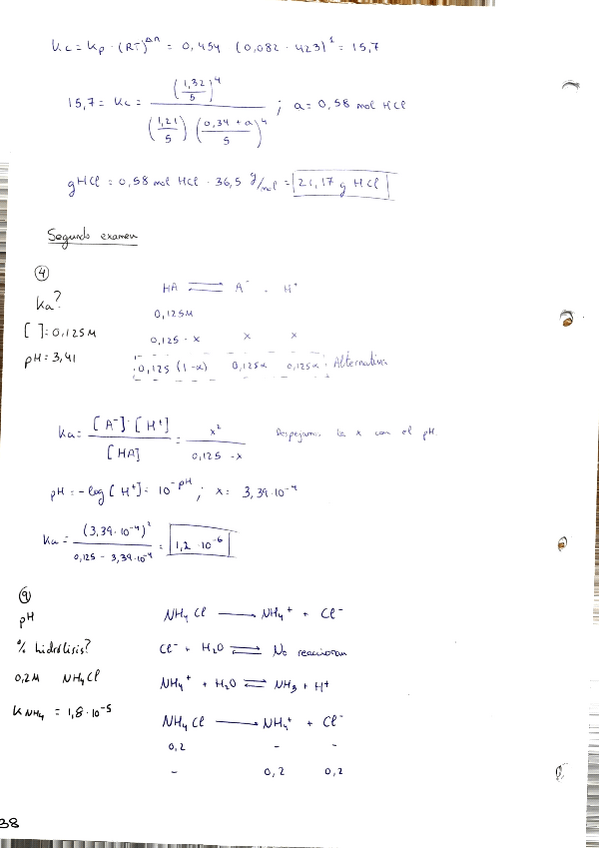 Kc = Kp · (RT)^Δn = 0,454 (0,082 · 423)^1 = 15,7
15,7 = Kc = (1,32/5)^4 / (1,21/5) (0,34 + a/5)^4 ; a = 0,58 mol HCl
gHCl = 0,58 mol HCl · 36,5 g/mol = 21,17 g HCl
Segundo examen
④
Ka?
[ ]: 0,125M
pH = 3,41
HA ⇌ A⁻ . H⁺
0,125M
0,125 - x   x   x
0,125 (1-α)   0,125α   0,125α : Alternativa
Ka = [A⁻]·[H⁺] / [HA] = x² / 0,125 - x   Despejamos la x con el pH
pH = -log [H⁺] = 10^-pH ; x = 3,39·10⁻⁴
Ka = (3,39·10⁻⁴)² / 0,125 - 3,39·10⁻⁴ = 1,2·10⁻⁶
⑨
pH
% hidrólisis?
0,2M NH4Cl
K NH4 = 1,8·10⁻⁵
NH4Cl ⟶ NH4⁺ + Cl⁻
Cl⁻ + H2O ⇌ No reaccionan
NH4⁺ + H2O ⇌ NH3 + H⁺
NH4Cl ⟶ NH4⁺ + Cl⁻
0,2   -   -
-   0,2   0,2
38